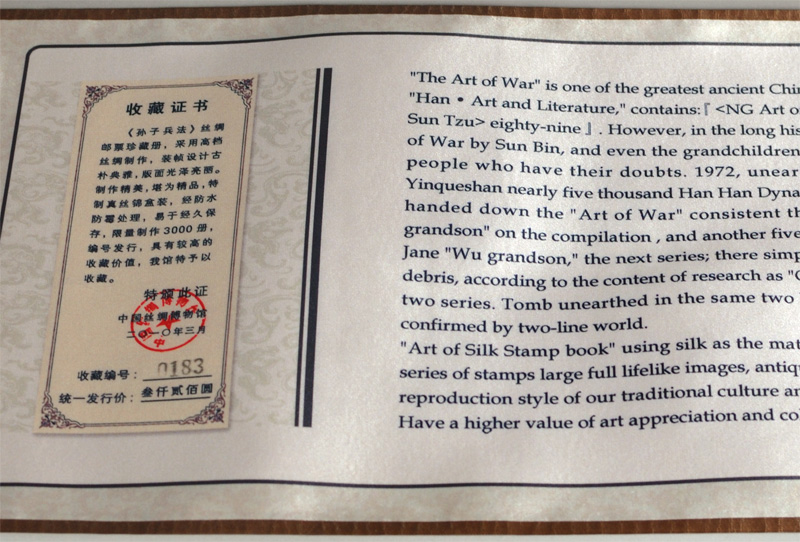 收藏证书
《孙子兵法》丝绸
邮票珍藏册，采用高档
丝绸制作，装帧设计古
朴典雅，版面光泽亮丽。
制作精美，堪为精品，特
制真丝锦盒装，经防水
防霉处理，易于经久保
存，限量制作3000册，
编号发行，具有较高的
收藏价值，我馆特予以
收藏。
特颁此证
中国丝绸博物馆
二〇一〇年三月
收藏编号：0183
统一发行价：叁仟贰佰圆
"The Art of War" is one of the greatest ancient Chin
"Han • Art and Literature," contains:『 <NG Art o
Sun Tzu> eighty-nine 』. However, in the long his
of War by Sun Bin, and even the grandchildren
people who have their doubts. 1972, unear
Yinqueshan nearly five thousand Han Han Dyna
handed down the "Art of War" consistent th
grandson" on the compilation , and another five
Jane "Wu grandson," the next series; there simp
debris, according to the content of research as "G
two series. Tomb unearthed in the same two
confirmed by two-line world.
"Art of Silk Stamp book" using silk as the mat
series of stamps large full lifelike images, antiqu
reproduction style of our traditional culture an
Have a higher value of art appreciation and co